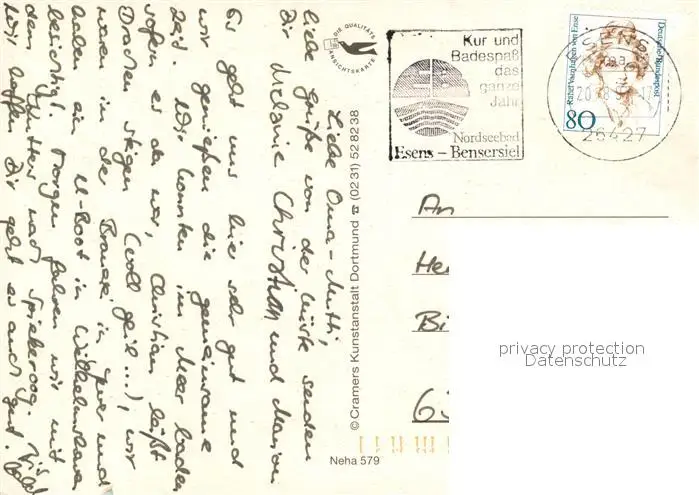 Liebe Oma - Mutti,
liebe Grüße von der Küste senden
Dir Melanie Christian und Marion
Es geht uns hier sehr gut und
wir genießen die gemeinsame
Zeit. Wir konnten im Meer baden
sofern es da war, Christian läßt
Drachen steigen (voll geil ...), wir
waren in der Brauerei in Jever und
haben ein U-Boot in Wilhelmshaven
besichtigt. Morgen fahren wir mit
dem Kutter nach Spiekeroog. Bis bald
Wir hoffen Dir geht es auch gut.
DIE QUALITÄTS
ANSICHTSKARTE
© Cramers Kunstanstalt Dortmund ☎ (0231) 528238
Neha 579
Kur und
Badespaß
das
ganze
Jahr
Nordseebad
Esens – Bensersiel
Deutsche Bundespost
Rahel Varnhagen von Ense
80
26427
An
privacy protection
Datenschutz